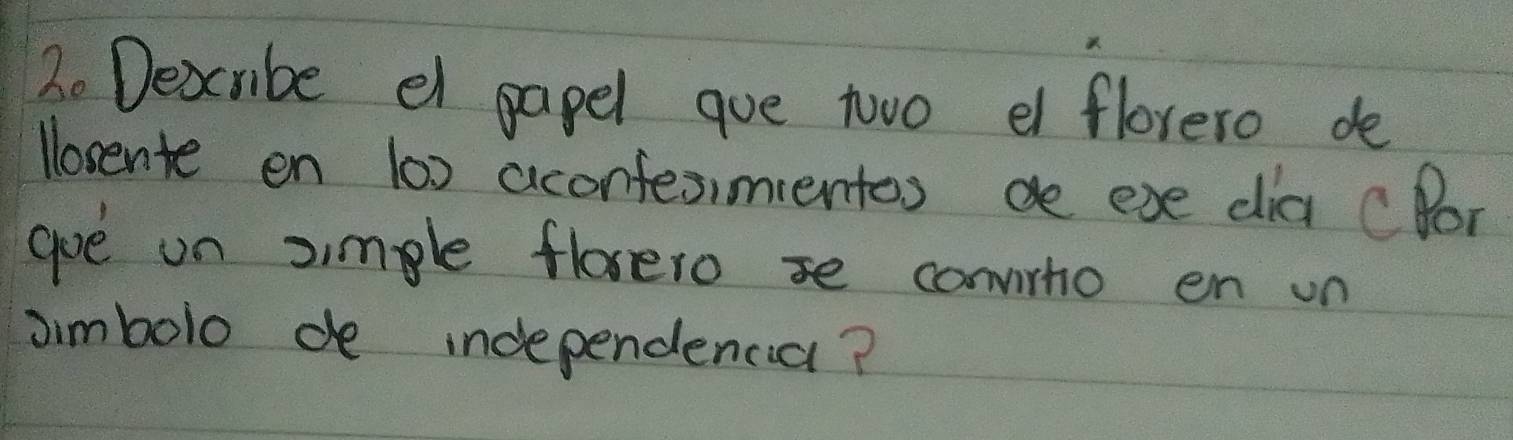 2. Describe el papel que tuvo el florero de
llorente en los acontesimientos de ese día ¿Por
qué un simple florero se convirtio en un
simbolo de independencia?